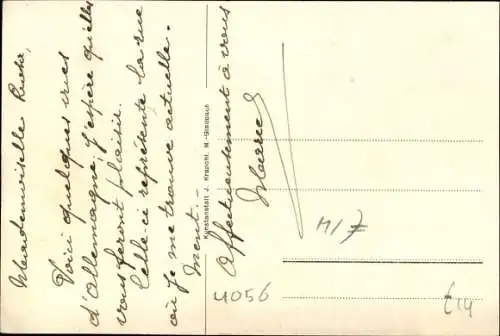 Mademoiselle
Voici quelques vues
d'Allemagne, j'espère qu'elles
vous feront plaisir.
Celle-ci représente la rue
où je me trouve actuelle-
ment.-
Affectueusement à vous
Kunstanstalt J. Krapohl, M.-Gladbach
M/7
4056